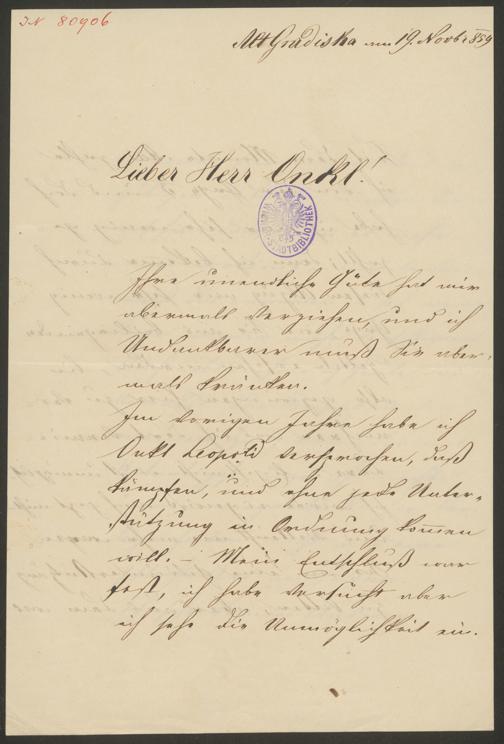 IN 80906
Alt Gradiska am 19. Novbr 859
Lieber Herr Onkl!
WIENER STADTBIBLIOTHEK
Ihre unendliche Güte hat mir
abermals verziehen, und ich
Undankbarer muß Sie aber-
mals kränken.
Im vorigen Jahre habe ich
Onkl Leopold versprochen, daß
kämpfen, und ohne jede Unter-
stützung in Ordnung kommen
will. – Mein Entschluß war
fest, ich habe versucht aber
ich sehe die Unmöglichkeit ein.